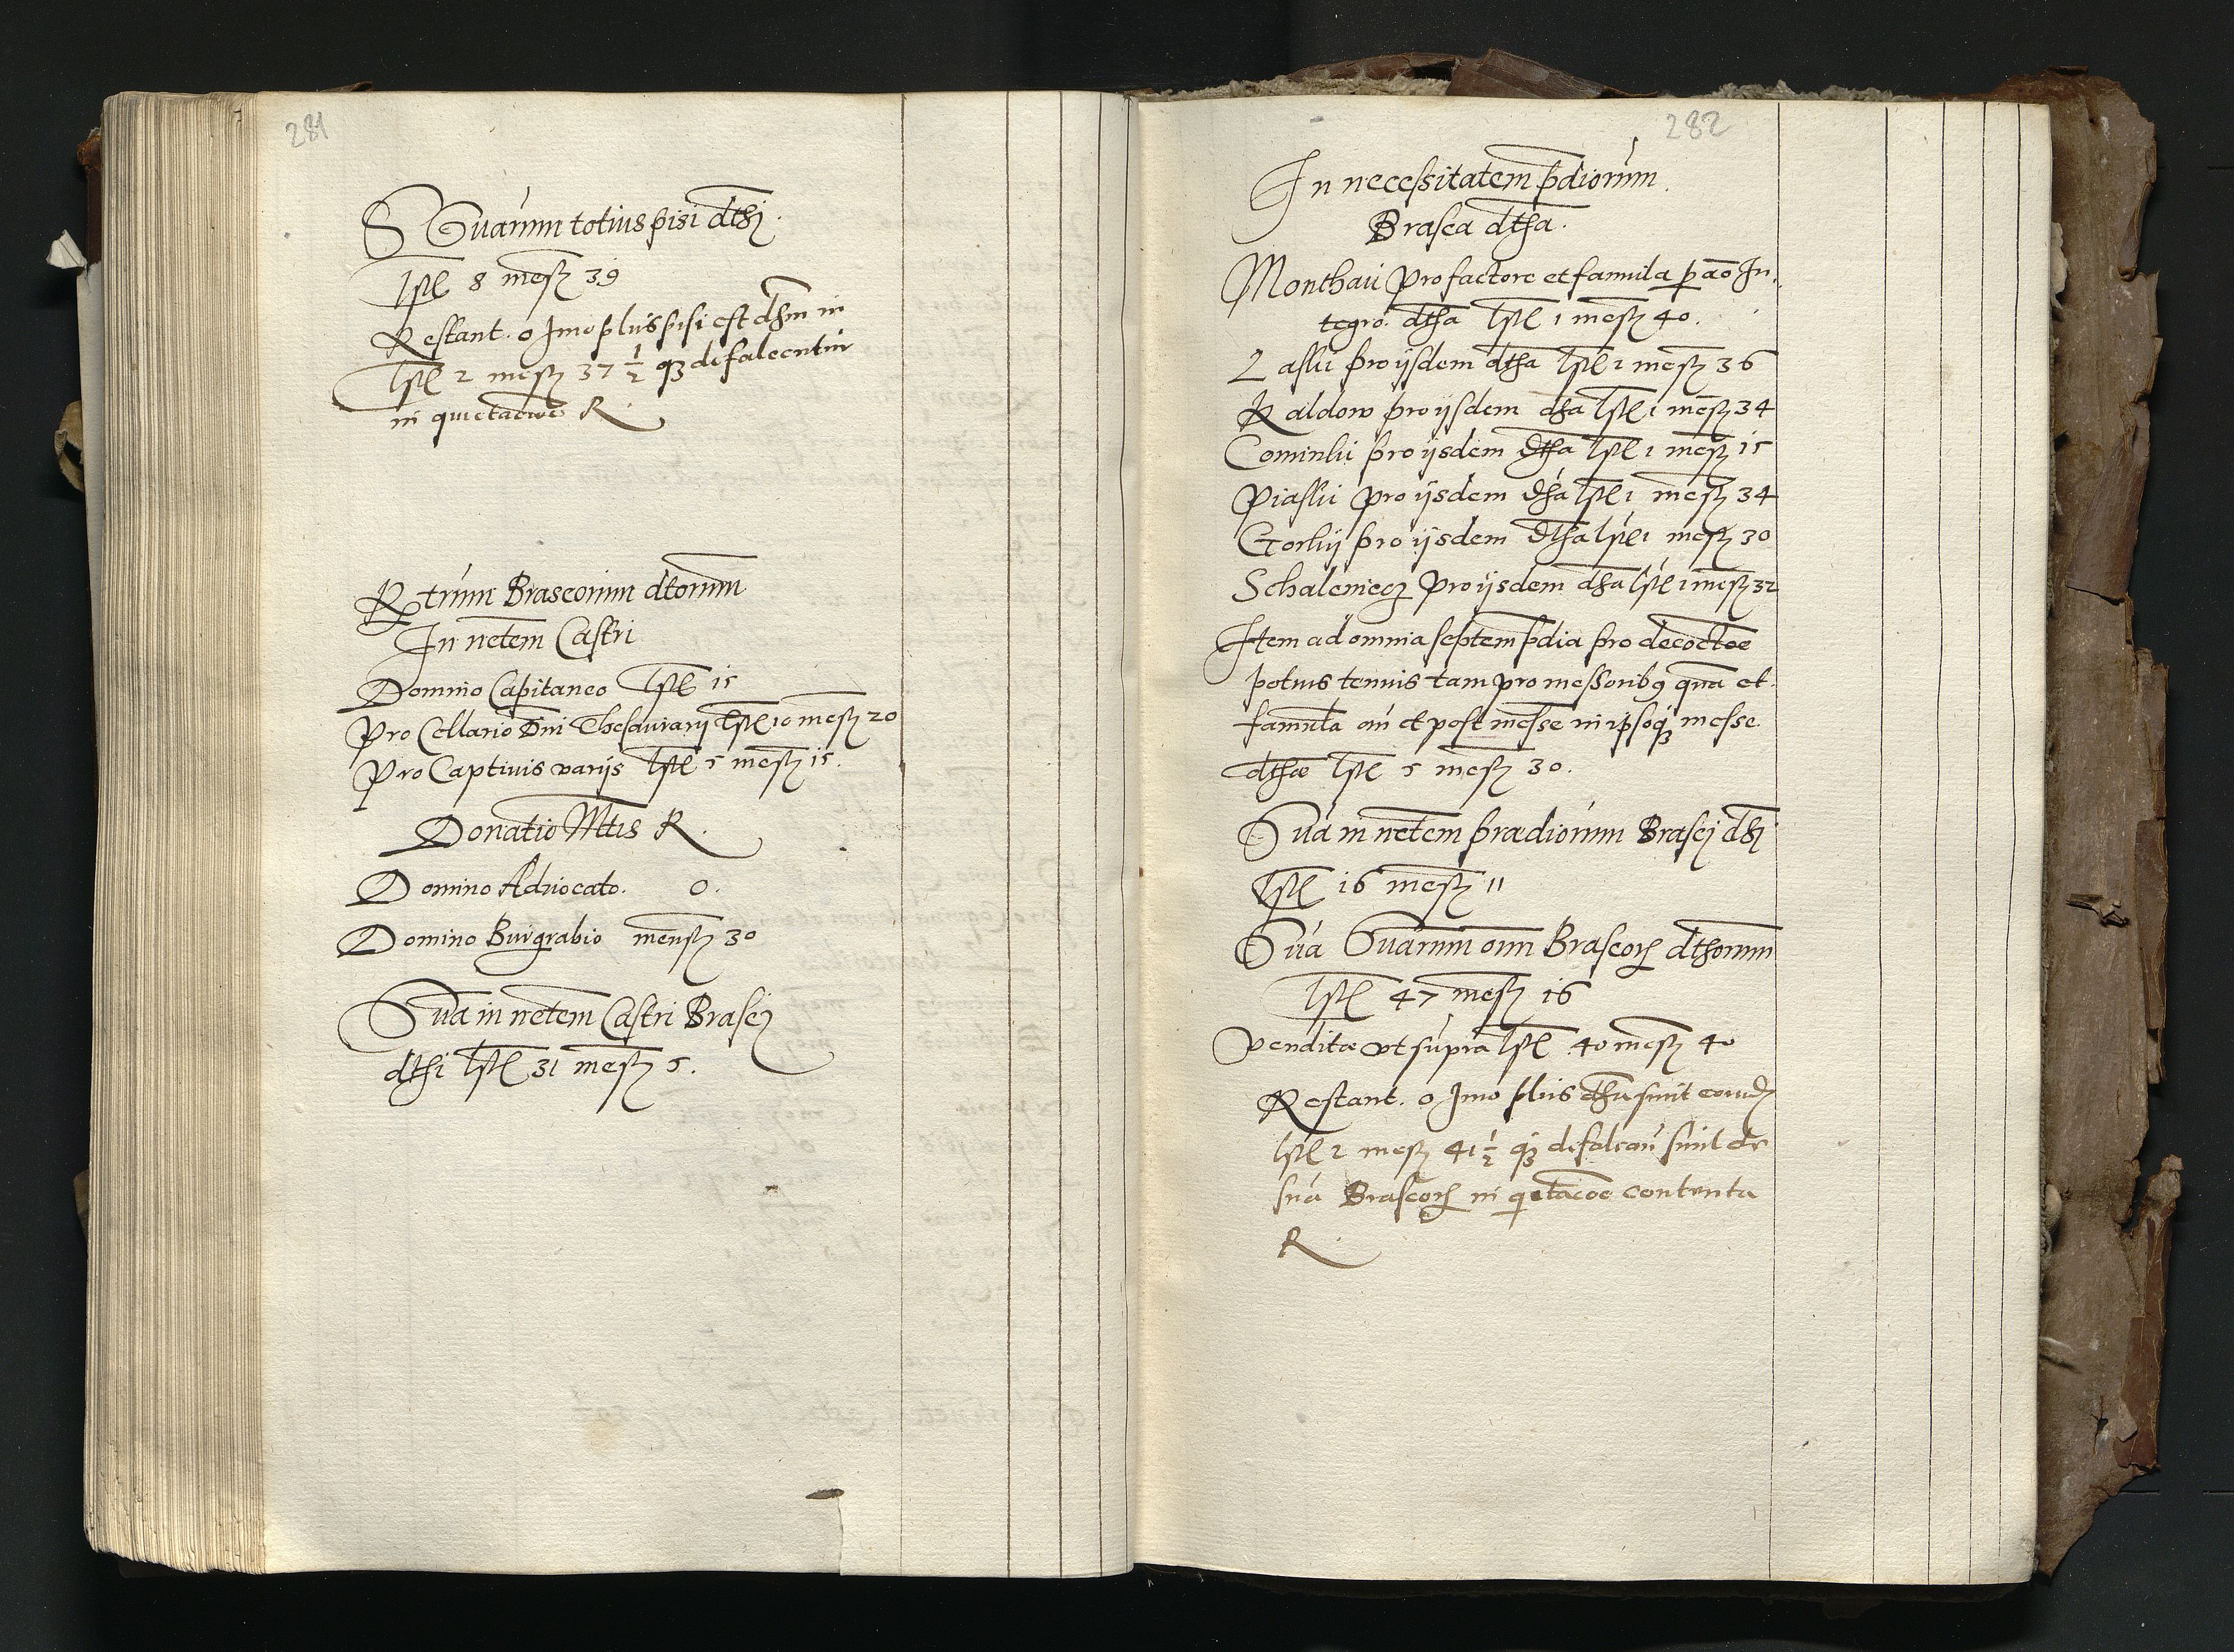 281
Suarum totius pisi dthj.
lpst 8 mesz 39
Restant. o Imo plus pisi est dthm in
lpst 2 mesz 37 1/2 qz defalcentur
in quietacioe R
Rtrum Braseorum dtorum
In netem Castri
Domino Capitaneo lpst 15
Pro Cellario Dni Thesaurarij lpst 10 mesz 20
Pro Captivis varijs lpst 5 mesz 15.
Donatio Mtis R.
Domino Advocato. 0.
Domino Burgrabio mensz 30
Sua in netem Castri Brasej
dthi lpst 31 mesz 5.
282
In necessitatem pdiorum
Brasea dtha.
Monthaii pro factore et familia p ao In-
tegro. dtha lpst 1 mesz 40.
Lassii pro ijsdem dtha lpst 2 mesz 36
Kaldow pro ijsdem dha lpst 1 mesz 34
Cominkii pro ijsdem dtha lpst 1 mesz 15
Piaskii pro ijsdem dha lpst 1 mesz 34
Gorkij pro ijsdem dtha lpst 1 mesz 30
Schaleniecz pro ijsdem dtha lpst 1 mesz 32
Item ad omnia septem pdia pro decoctoe
potus tenuis tam pro messoribg qua et
familia an et post messe in ipsoqz messe
dthae lpst 5 mesz 30.
Sua in netem praediorum Brasej dthj
lpst 16 mesz 11
Sua Suarum oim Braseorz dthorum
lpst 47 mesz 16
venditae vt supra lpst 40 mesz 40
Restant. o Imo plus dtha sunt eorund
lpst 2 mesz 41 1/2 qz defalcan sunt de
sua Braseorz in qietacoe contenta
R